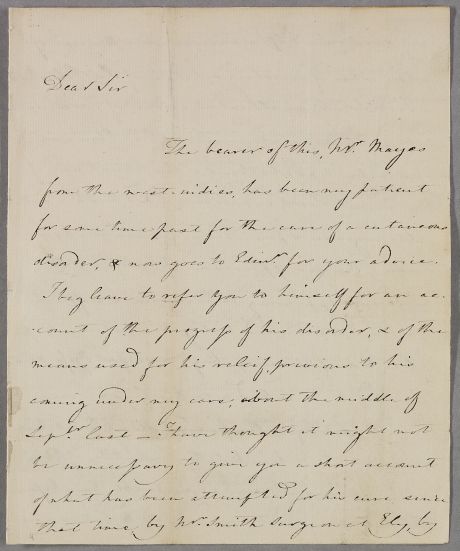 Dear Sir
The bearer of this, Mr. Mayes
from the west-indies, has been my patient
for some time past for the cure of a cutaneous
disorder, & now goes to Edinr. for your advice.
I beg leave to refer you to himself for an ac-
-count of the progress of his disorder, & of the
means used for his relief, previous to his
coming under my care; about the middle of
Sepbr. last — I have thought it might not
be unnecessary to give you a short account
of what has been attempted for his cure, since
that time, by Mr. Smith Surgeon at Ely, by